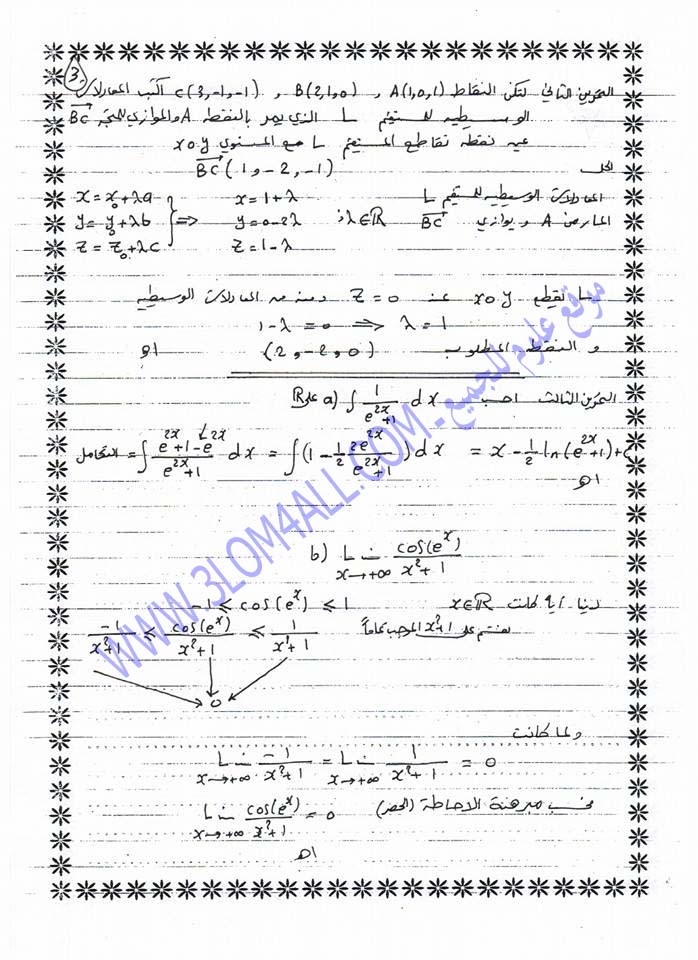 3
التمرين الثاني لتكن النقاط A(1,0,1) و B(2,1,0) و C(3,-1,-1) اكتب المعادلات
الوسيطية للمستقيم L الذي يمر بالنقطة A والموازي للمتجه BC
عين نقطة تقاطع المستقيم L مع المستوي xoy
الحل BC(1,-2,-1)
المعادلات الوسيطية للمستقيم L x=1+λ x=x₀+λa
المار من A ويوازي BC λ∈ℝ; y=0-2λ ⇒ y=y₀+λb
z=1-λ z=z₀+λc
L تقطع xoy عند z=0 ومنه من المعادلات الوسيطية
1-λ=0 ⇒ λ=1
و النقطة المطلوب (2,-2,0) اهـ
التمرين الثالث احسب a) ∫ 1/(e^{2x}+1) dx على ℝ
التكامل = ∫ (e^{2x}+1-e^{2x})/(e^{2x}+1) dx = ∫(1-1/2 2e^{2x}/(e^{2x}+1))dx = x-1/2 ln(e^{2x}+1)+c
اهـ
b) Lim x→+∞ cos(e^x)/(x²+1)
لدينا أياً كانت x∈ℝ -1≤cos(e^x)≤1
نقسم على x²+1 الموجب تماماً -1/(x²+1) ≤ cos(e^x)/(x²+1) ≤ 1/(x²+1)
0
ولما كانت
Lim x→+∞ -1/(x²+1) = Lim x→+∞ 1/(x²+1) = 0
فحسب مبرهنة الاحاطة (الحصر) Lim x→+∞ cos(e^x)/(x²+1) = 0
اهـ
WWW.3LOM4ALL.COM - موقع علوم للجميع